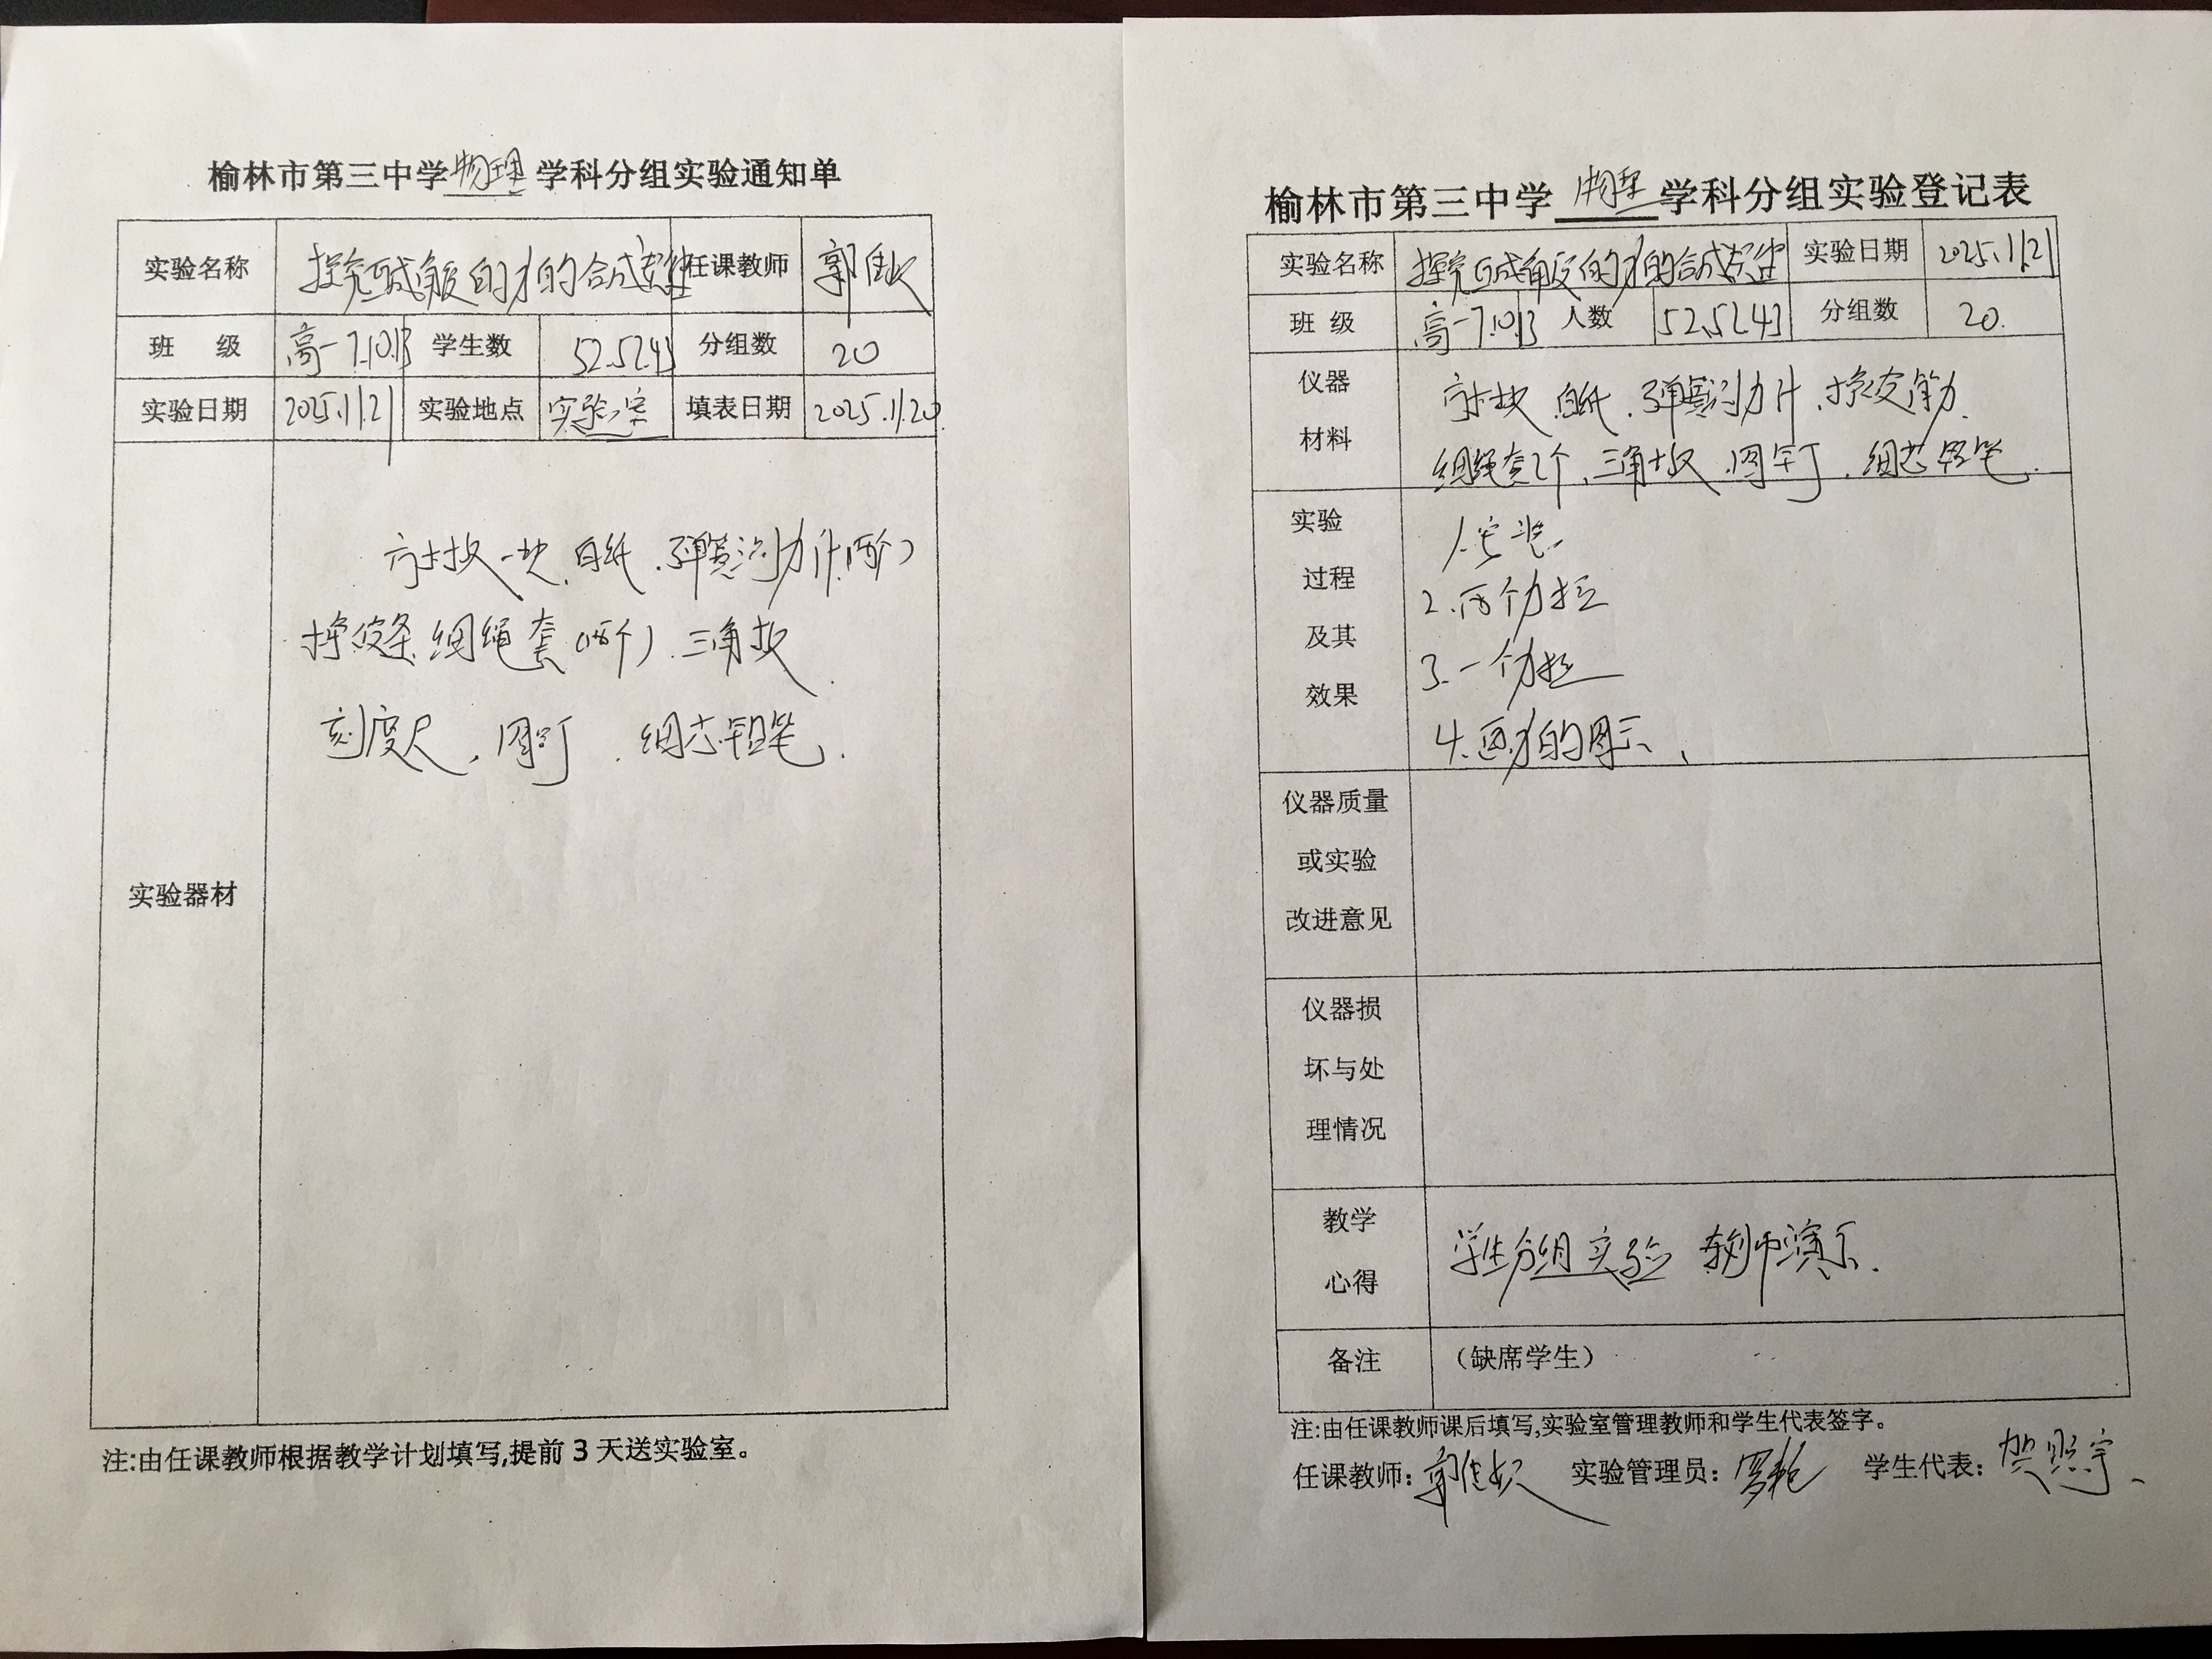 榆林市第三中学物理学科分组实验通知单
实验名称 探究互成角度的力的合成规律 任课教师 郭佳
班 级 高一7.10.13 学生数 52.52.43 分组数 20
实验日期 2025.11.21 实验地点 实验室 填表日期 2025.11.20
实验器材
方木板一块、白纸、弹簧测力计(两个)
橡皮条、细绳套(两个)、三角板
刻度尺、图钉、细芯铅笔.
注:由任课教师根据教学计划填写,提前3天送实验室。
榆林市第三中学 物理 学科分组实验登记表
实验名称 探究互成角度的力的合成规律 实验日期 2025.11.21
班 级 高一7.10.13 人数 52.52.43 分组数 20.
仪器
材料
方木块、白纸、弹簧测力计、橡皮筋、
细绳套2个、三角板、图钉、细芯铅笔.
实验
过程
及其
效果
1.安装
2.两个力拉
3.一个力拉
4.画力的图示、
仪器质量
或实验
改进意见
仪器损
坏与处
理情况
教学
心得
学生分组实验 教师演示.
备注 （缺席学生）
注:由任课教师课后填写,实验室管理教师和学生代表签字。
任课教师: 郭佳 实验管理员: 罗艳 学生代表: 贺照宇